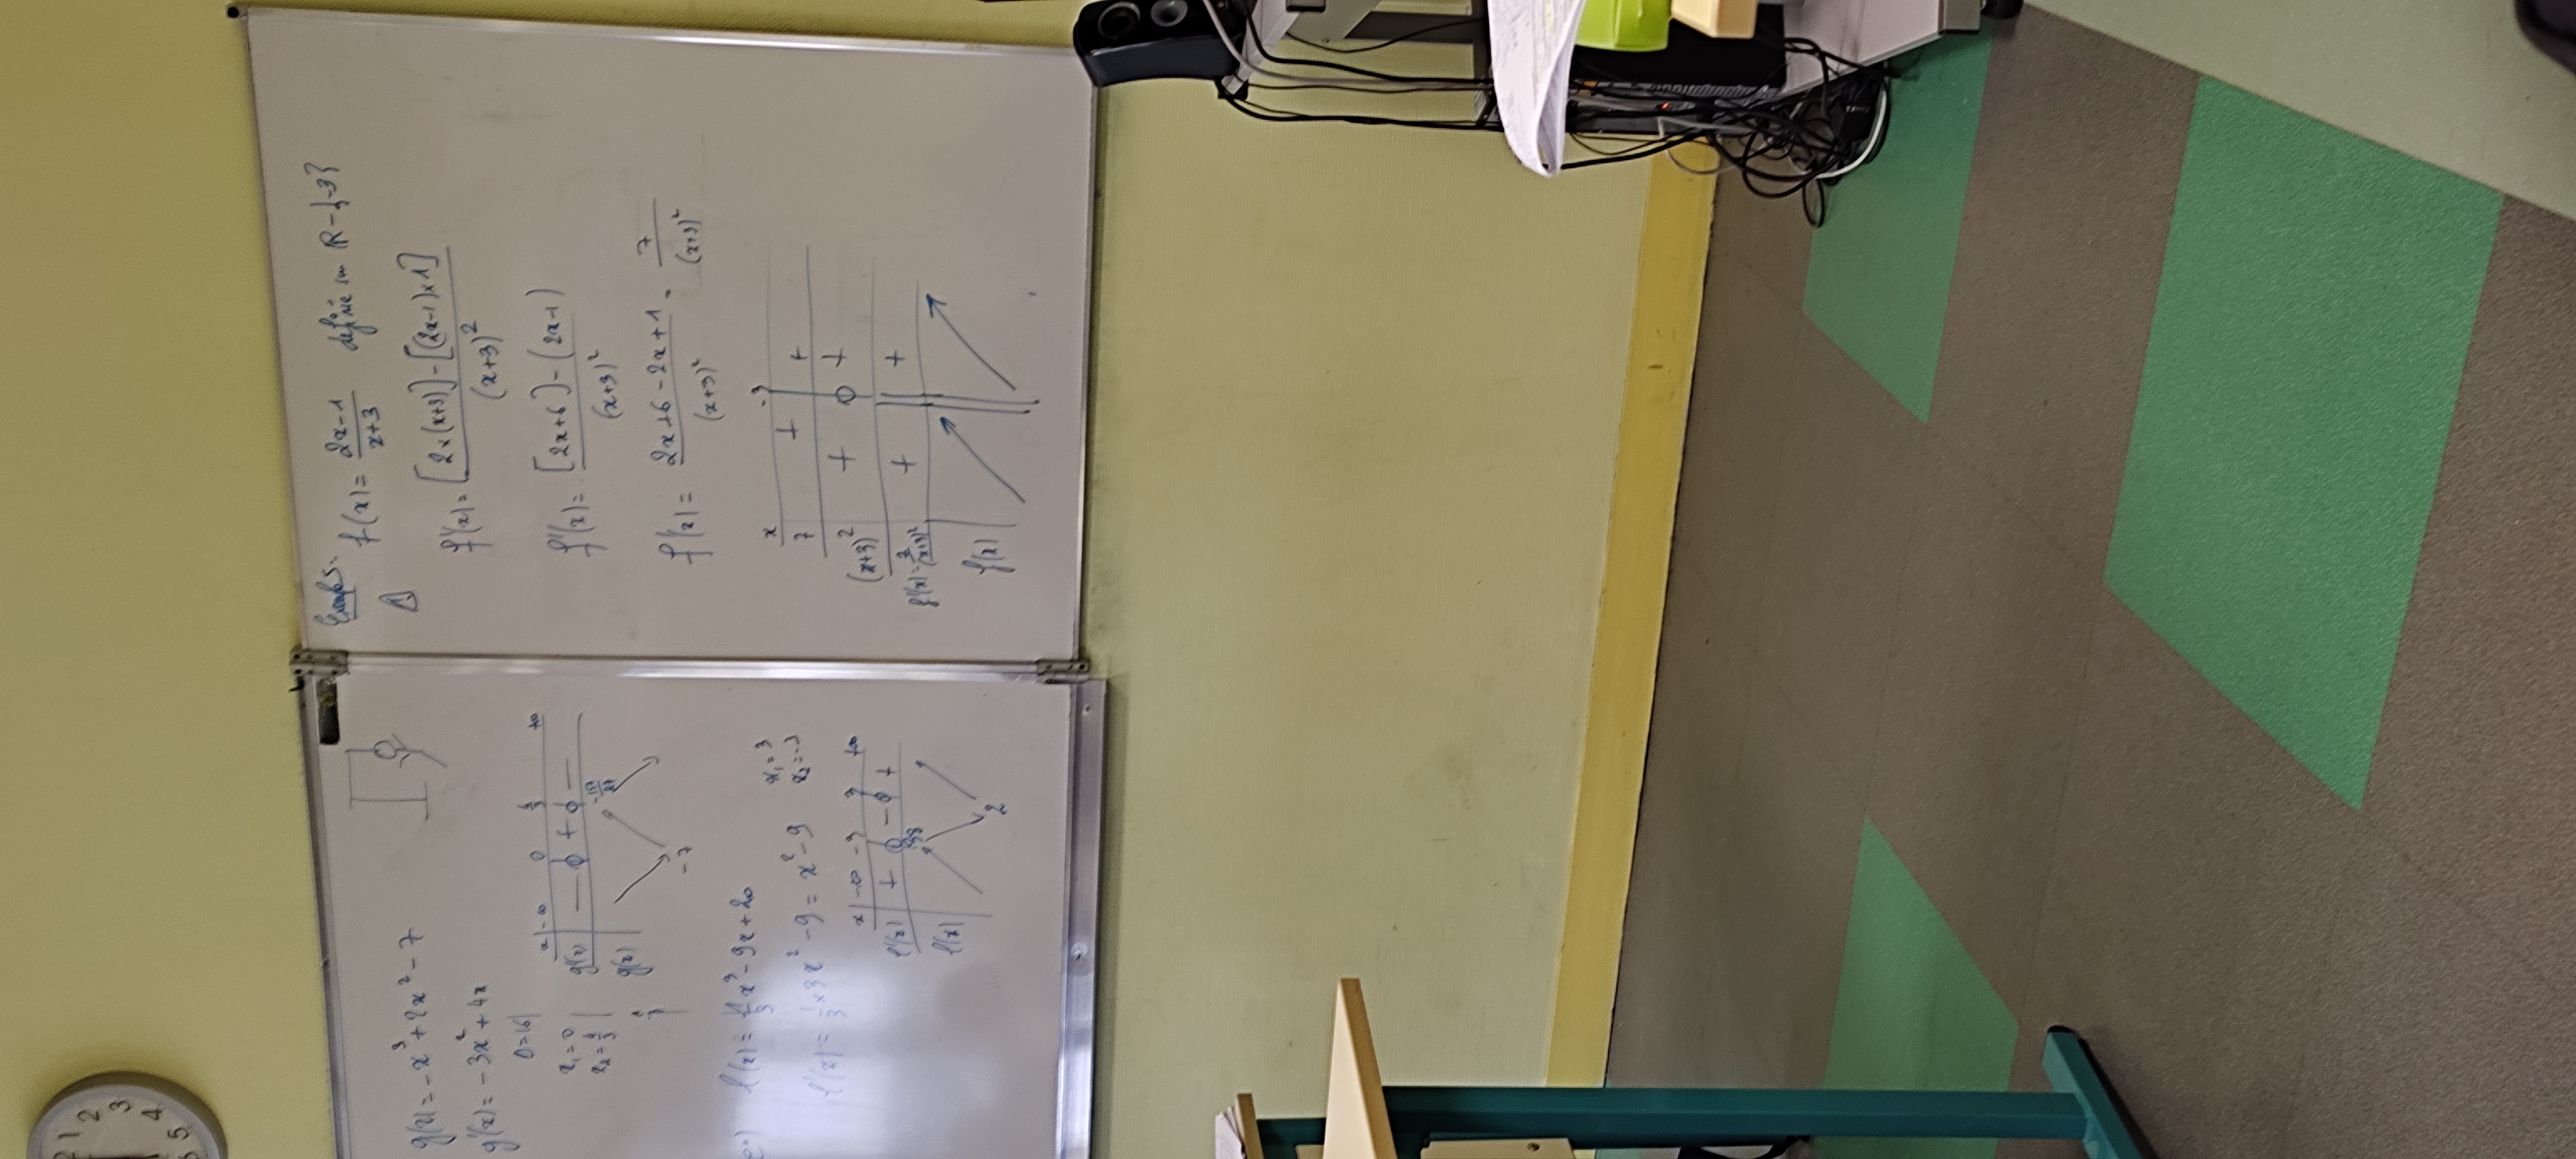 1
2
3
4
5
g(x) = -x³ + 2x² - 7
g'(x) = -3x² + 4x
Δ = 16
x₁ = 0
x₂ = 4/3
x | -∞ 0 4/3 +∞
g'(x) | — 0 + 0 —
g(x) | -7 -157/27
l(x) = 1/3 x³ - 9x + 20
l'(x) = 1/3 × 3x² - 9 = x² - 9
x₁ = 3
x₂ = -3
x | -∞ -3 3 +∞
l'(x) | + 0 - 0 +
l(x) | 38 2
Exemples:
f(x) = (2x-1)/(x+3) définie sur R - {-3}
f'(x) = ([2×(x+3)] - [(2x-1)×1])/(x+3)²
f'(x) = ([2x+6] - (2x-1))/(x+3)²
f'(x) = (2x+6-2x+1)/(x+3)² = 7/(x+3)²
x | -3
7 | + +
(x+3)² | + 0 +
f'(x) = 7/(x+3)² | + || +
f(x) | ||